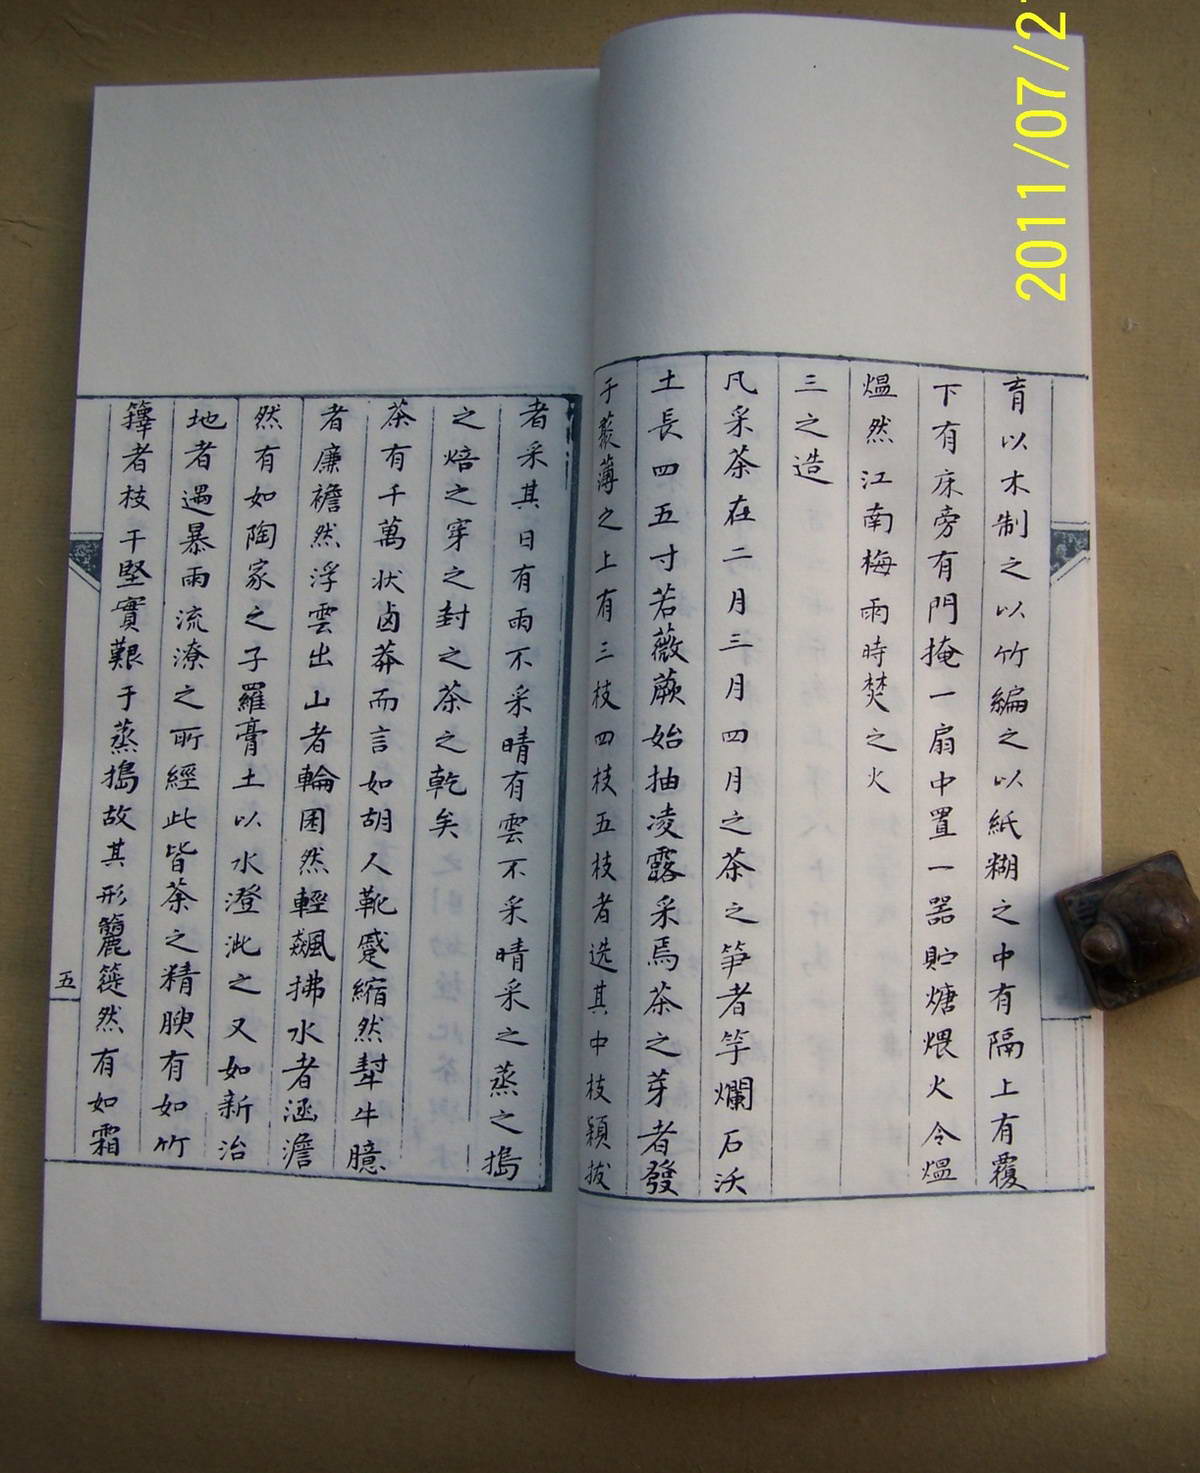 2011/07/2
育以木制之以竹編之以紙糊之中有隔上有覆
下有床旁有門掩一扇中置一器貯煻煨火令煴
煴然江南梅雨時焚之火
三之造
凡采茶在二月三月四月之茶之笋者竽爛石沃
土長四五寸若薇蕨始抽凌露采焉茶之芽者發
于藂薄之上有三枝四枝五枝者选其中枝穎拔
者采其日有雨不采晴有雲不采晴采之蒸之搗
之焙之穿之封之茶之乾矣
茶有千萬状卤莽而言如胡人靴蹙縮然犎牛臆
者廉襜然浮雲出山者輪囷然輕飈拂水者涵澹
然有如陶家之子羅膏土以水澄泚之又如新治
地者遇暴雨流潦之所經此皆茶之精腴有如竹
籜者枝干堅實艱于蒸搗故其形籭簁然有如霜
五